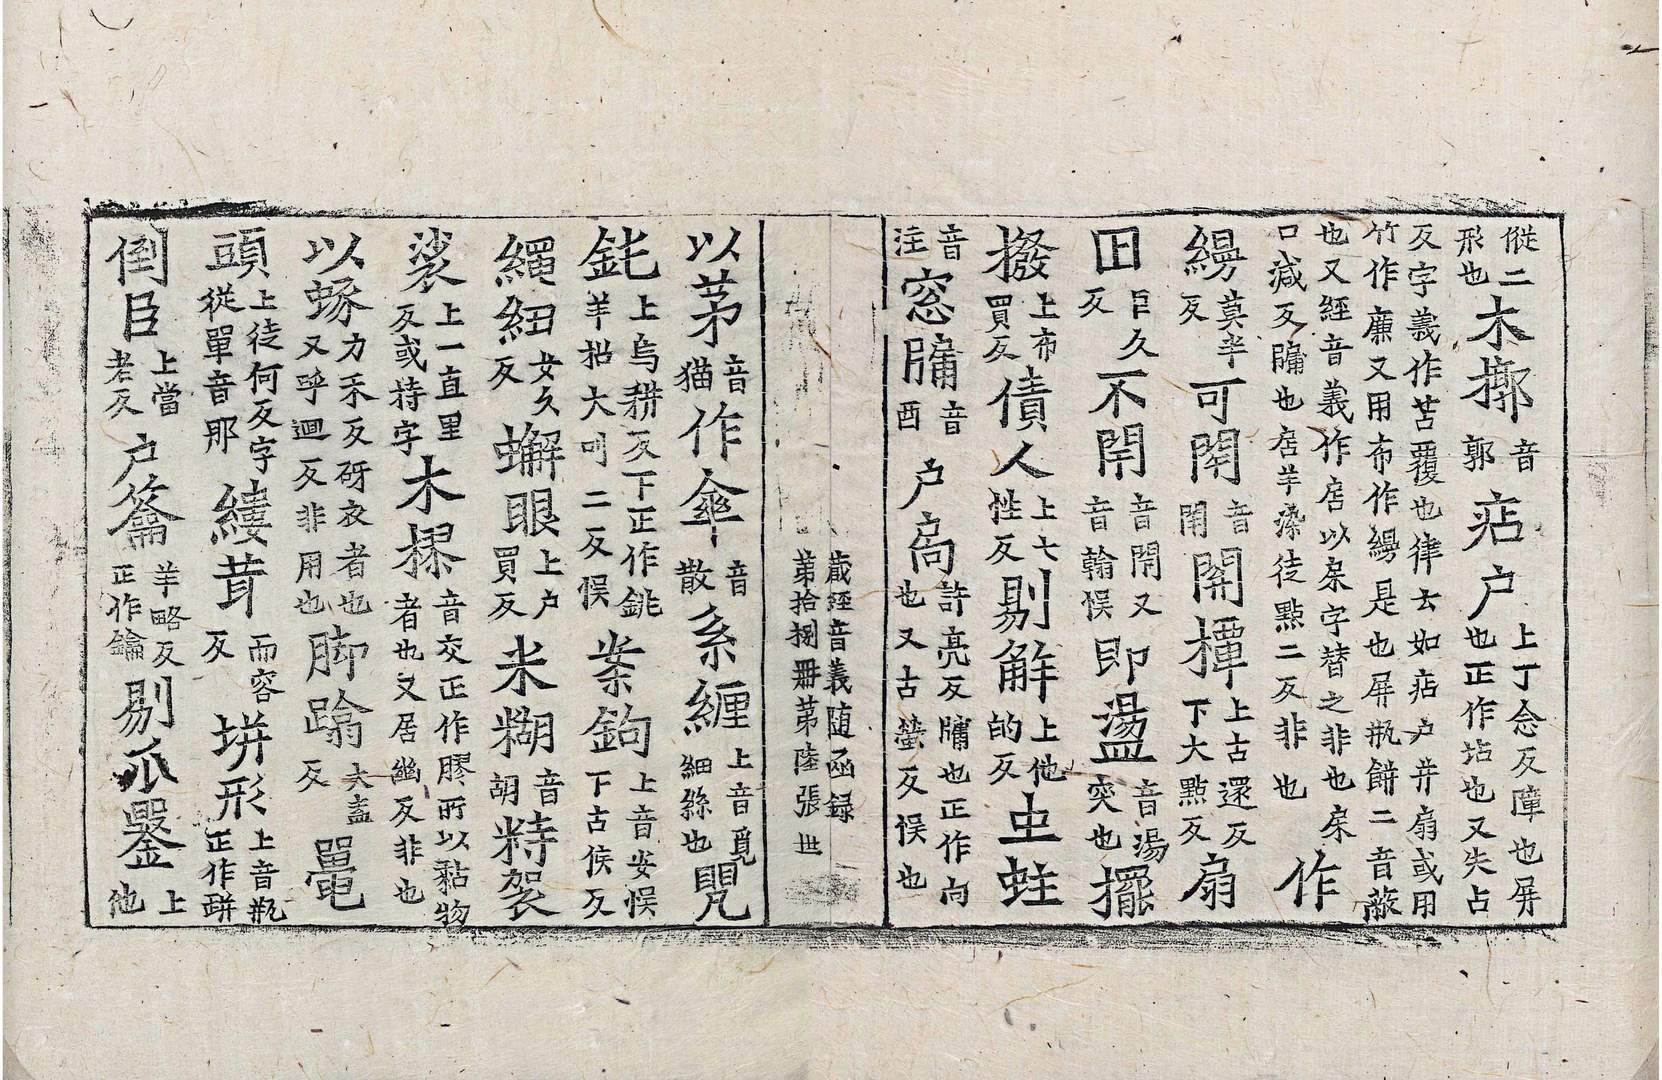 㒹二形也木摖音郭㾪户上丁念反障也屏也正作坫也又失占
反字義作苫覆也律云如㾪户并扇或用竹作廉又用布作縵是也屏瓶餅二音蔽
也又經音義作扂以㭒字替之非也㭒口減反牖也扂羊染徒點二反非也作
縵莫半反可閇音閇開撢上古還反下大點反扇
囙臼久反不閇音閈又音翰悮即盪音湯突也擺
撥上布買反債人上七性反剔解上他的反虫蛀
音注窓牖音酉户扄許亮反牖也正作向也又古螢反悮也
藏經音義随函録
苐拾捌冊苐陸張 世
以茅音猫作傘音散糸纏上音覓細絲也咒
𨥨上烏耕反下正作銚羊招大叫二反悮桉鉤上音安悮下古侯反
繩紐女久反蠏眼上户買反米糊音胡粰袈
裟上一直里反或持字木樛音交正作膠所以黏物者也又居幽反非也
以蜍力禾反又呼迴反非用也砑衣者也脚踰大盍反鼍
頭上徒何反字從單音那縷茸而容反㙂形上音瓶正作㻂
倒臼上當老反户籥羊略反正作鑰剔爪㽉上他